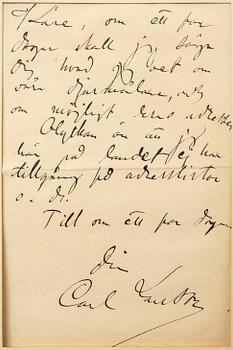 Käre, om ett par
dagar skall jag säga
dig hvad jag vet om
våra
om möjligt deras adresser
Olyckan är att jag
här på landet ej har
tillgång på adresslistor
o. d.
Till om ett par dagar
din
Carl Larsson